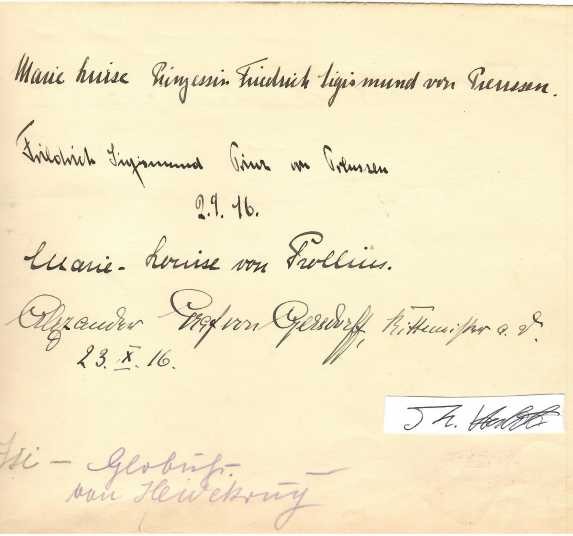 Marie Luise Prinzessin Friedrich Sigismund von Preussen.
Friedrich Sigismund Prinz von Preussen
2.9.16.
Marie-Louise von Prollius.
Alexander Graf von Gersdorff, Rittmeister a. D.
23. X. 16.
Th.
Isi –
von